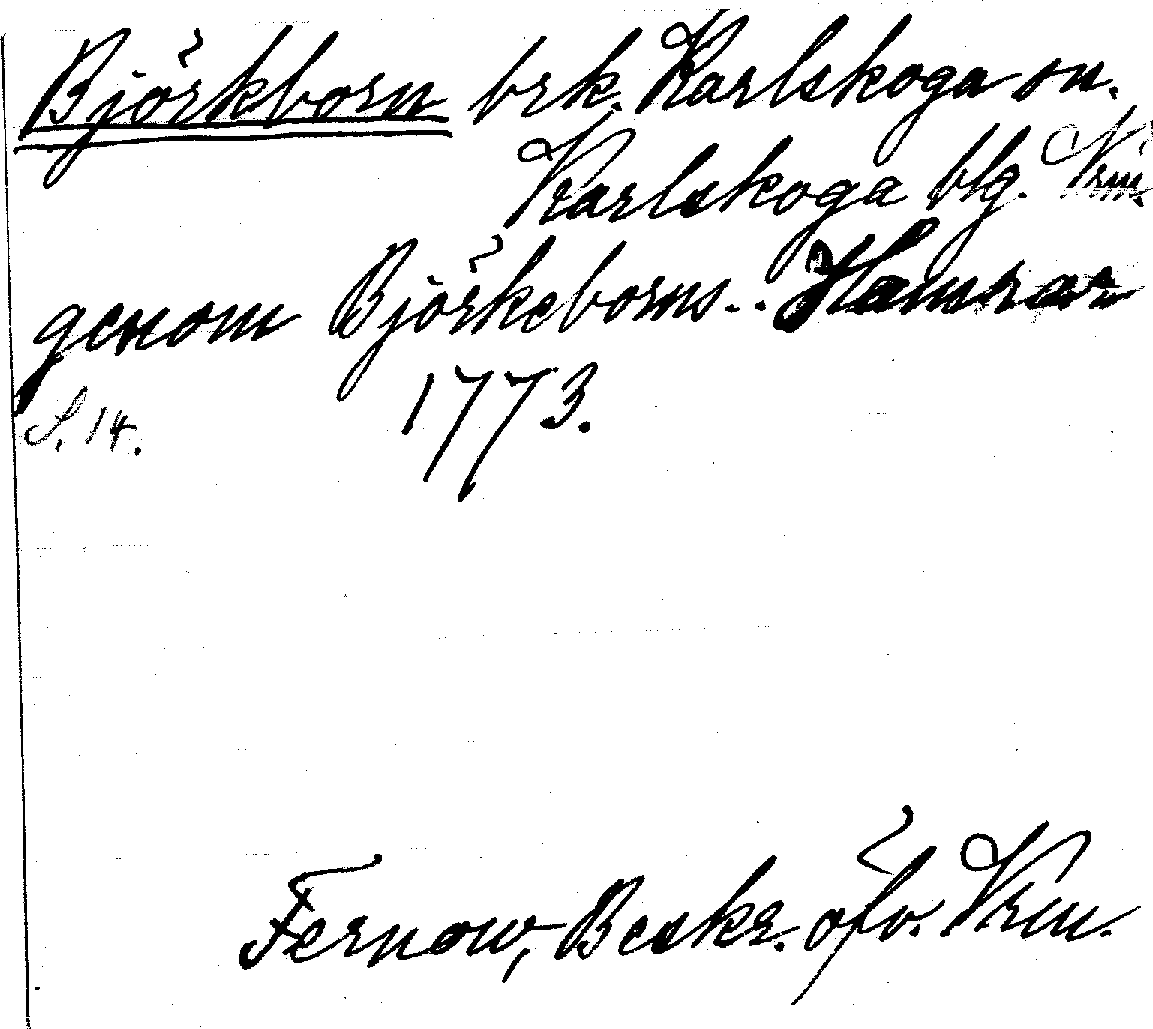 Björkborn brk. Karlskoga sn.
Karlskoga blg. Vrm.
genom Björkeborns.. Hamrar
1773.
S. 14.
Fernow, Beskr. öfv. Vrm.